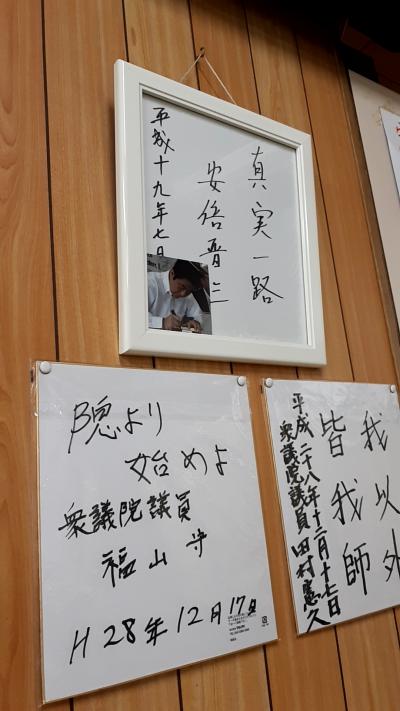 真実一路
安倍晋三
平成十九年七
隗より
始めよ
衆議院議員
福山守
H28年12月17日
我以外
皆我師
平成二十八年十二月十七日
衆議院議員田村憲久